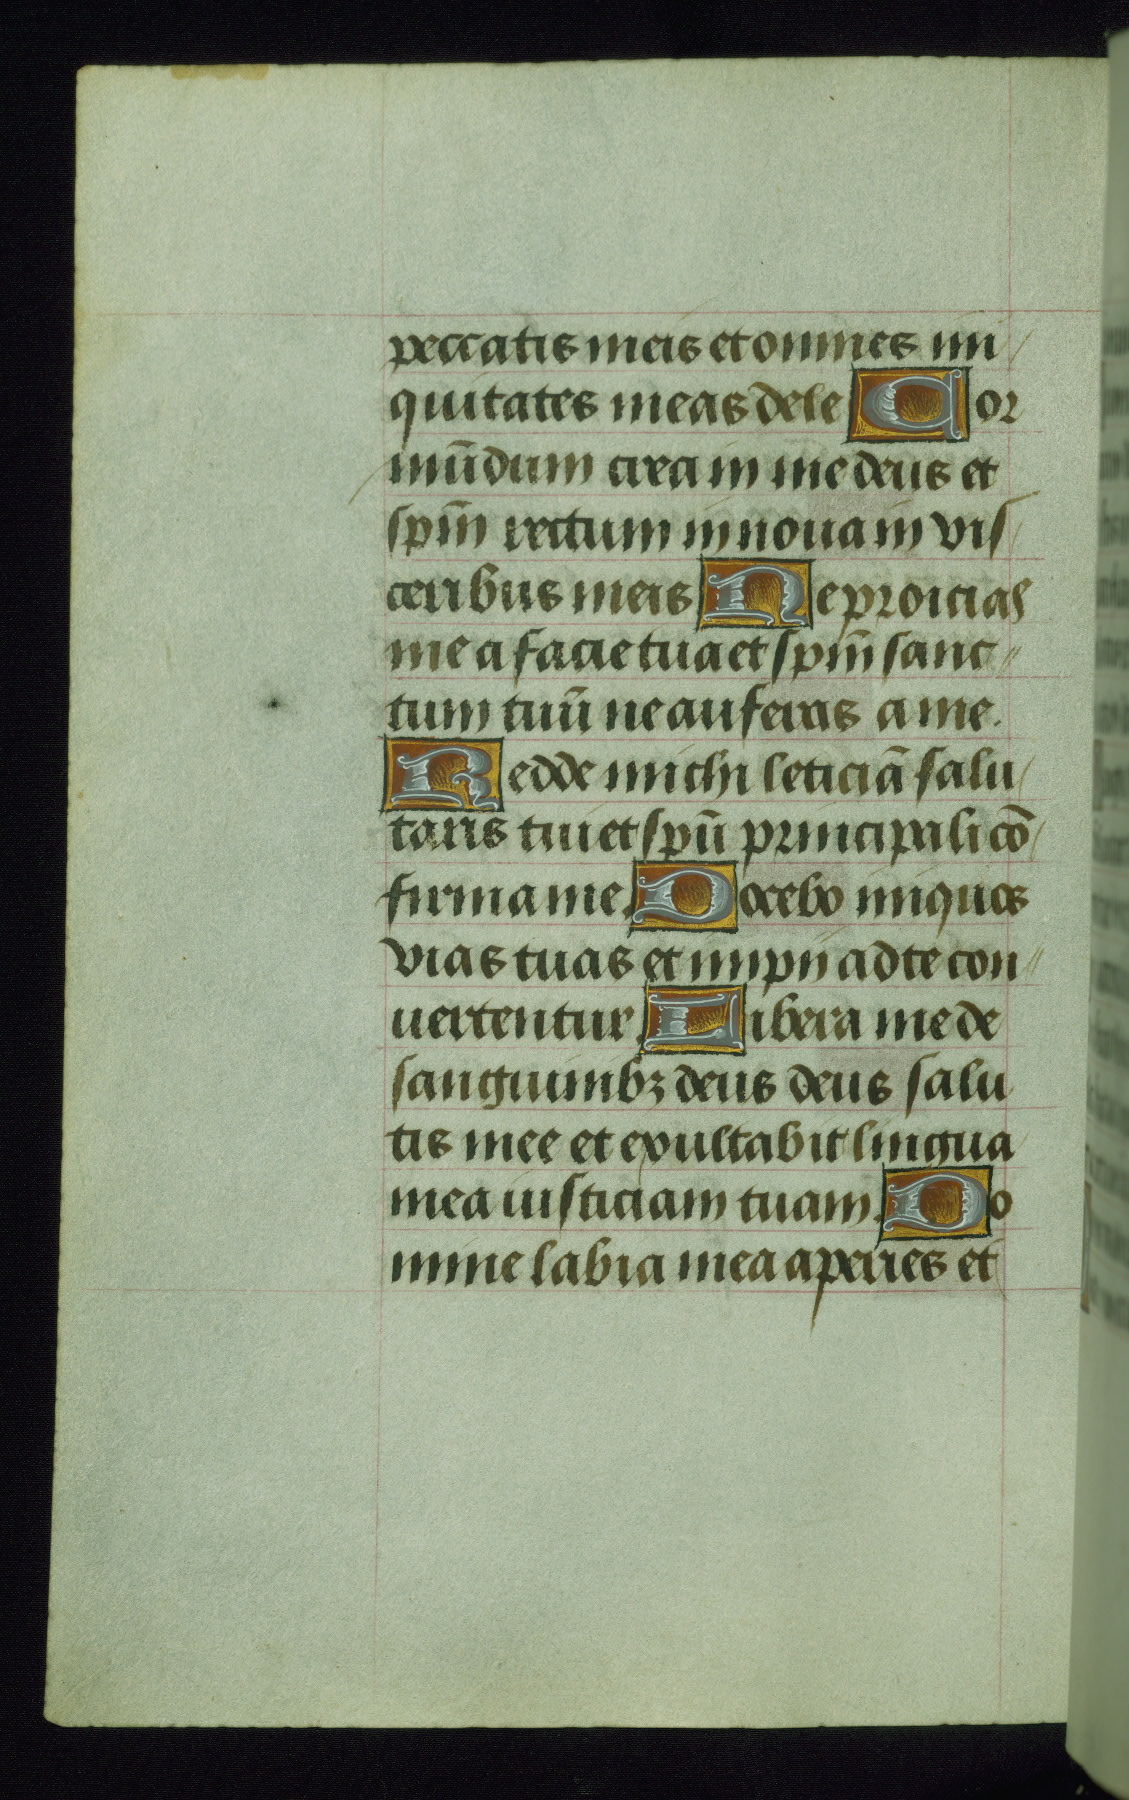 peccatis meis et omnes ini
quitates meas dele Cor
mūdum crea in me deus et
spm̄ rectum innoua in vis
ceribus meis Ne proicias
me a facie tua et spm̄ sanc
tum tuū ne auferas a me.
Redde michi leticiā salu
taris tui et spū principali cō
firma me. Docebo iniquos
vias tuas et impii ad te con
uertentur. Libera me de
sanguinibꝫ deus deus salu
tis mee et exultabit lingua
mea iusticiam tuam. Do
mine labia mea aperies et